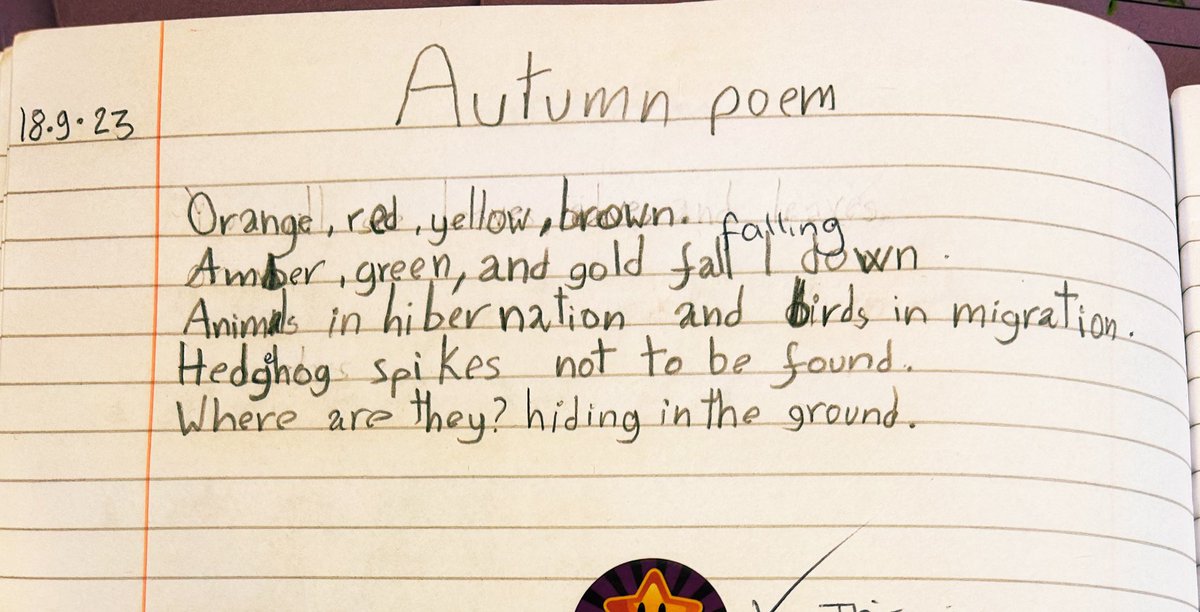 Autumn poem
18.9.23
Orange, red, yellow, brown.
Amber, green, and gold fall falling down.
Animals in hibernation and birds in migration.
Hedgehog spikes not to be found.
Where are they? hiding in the ground.
This